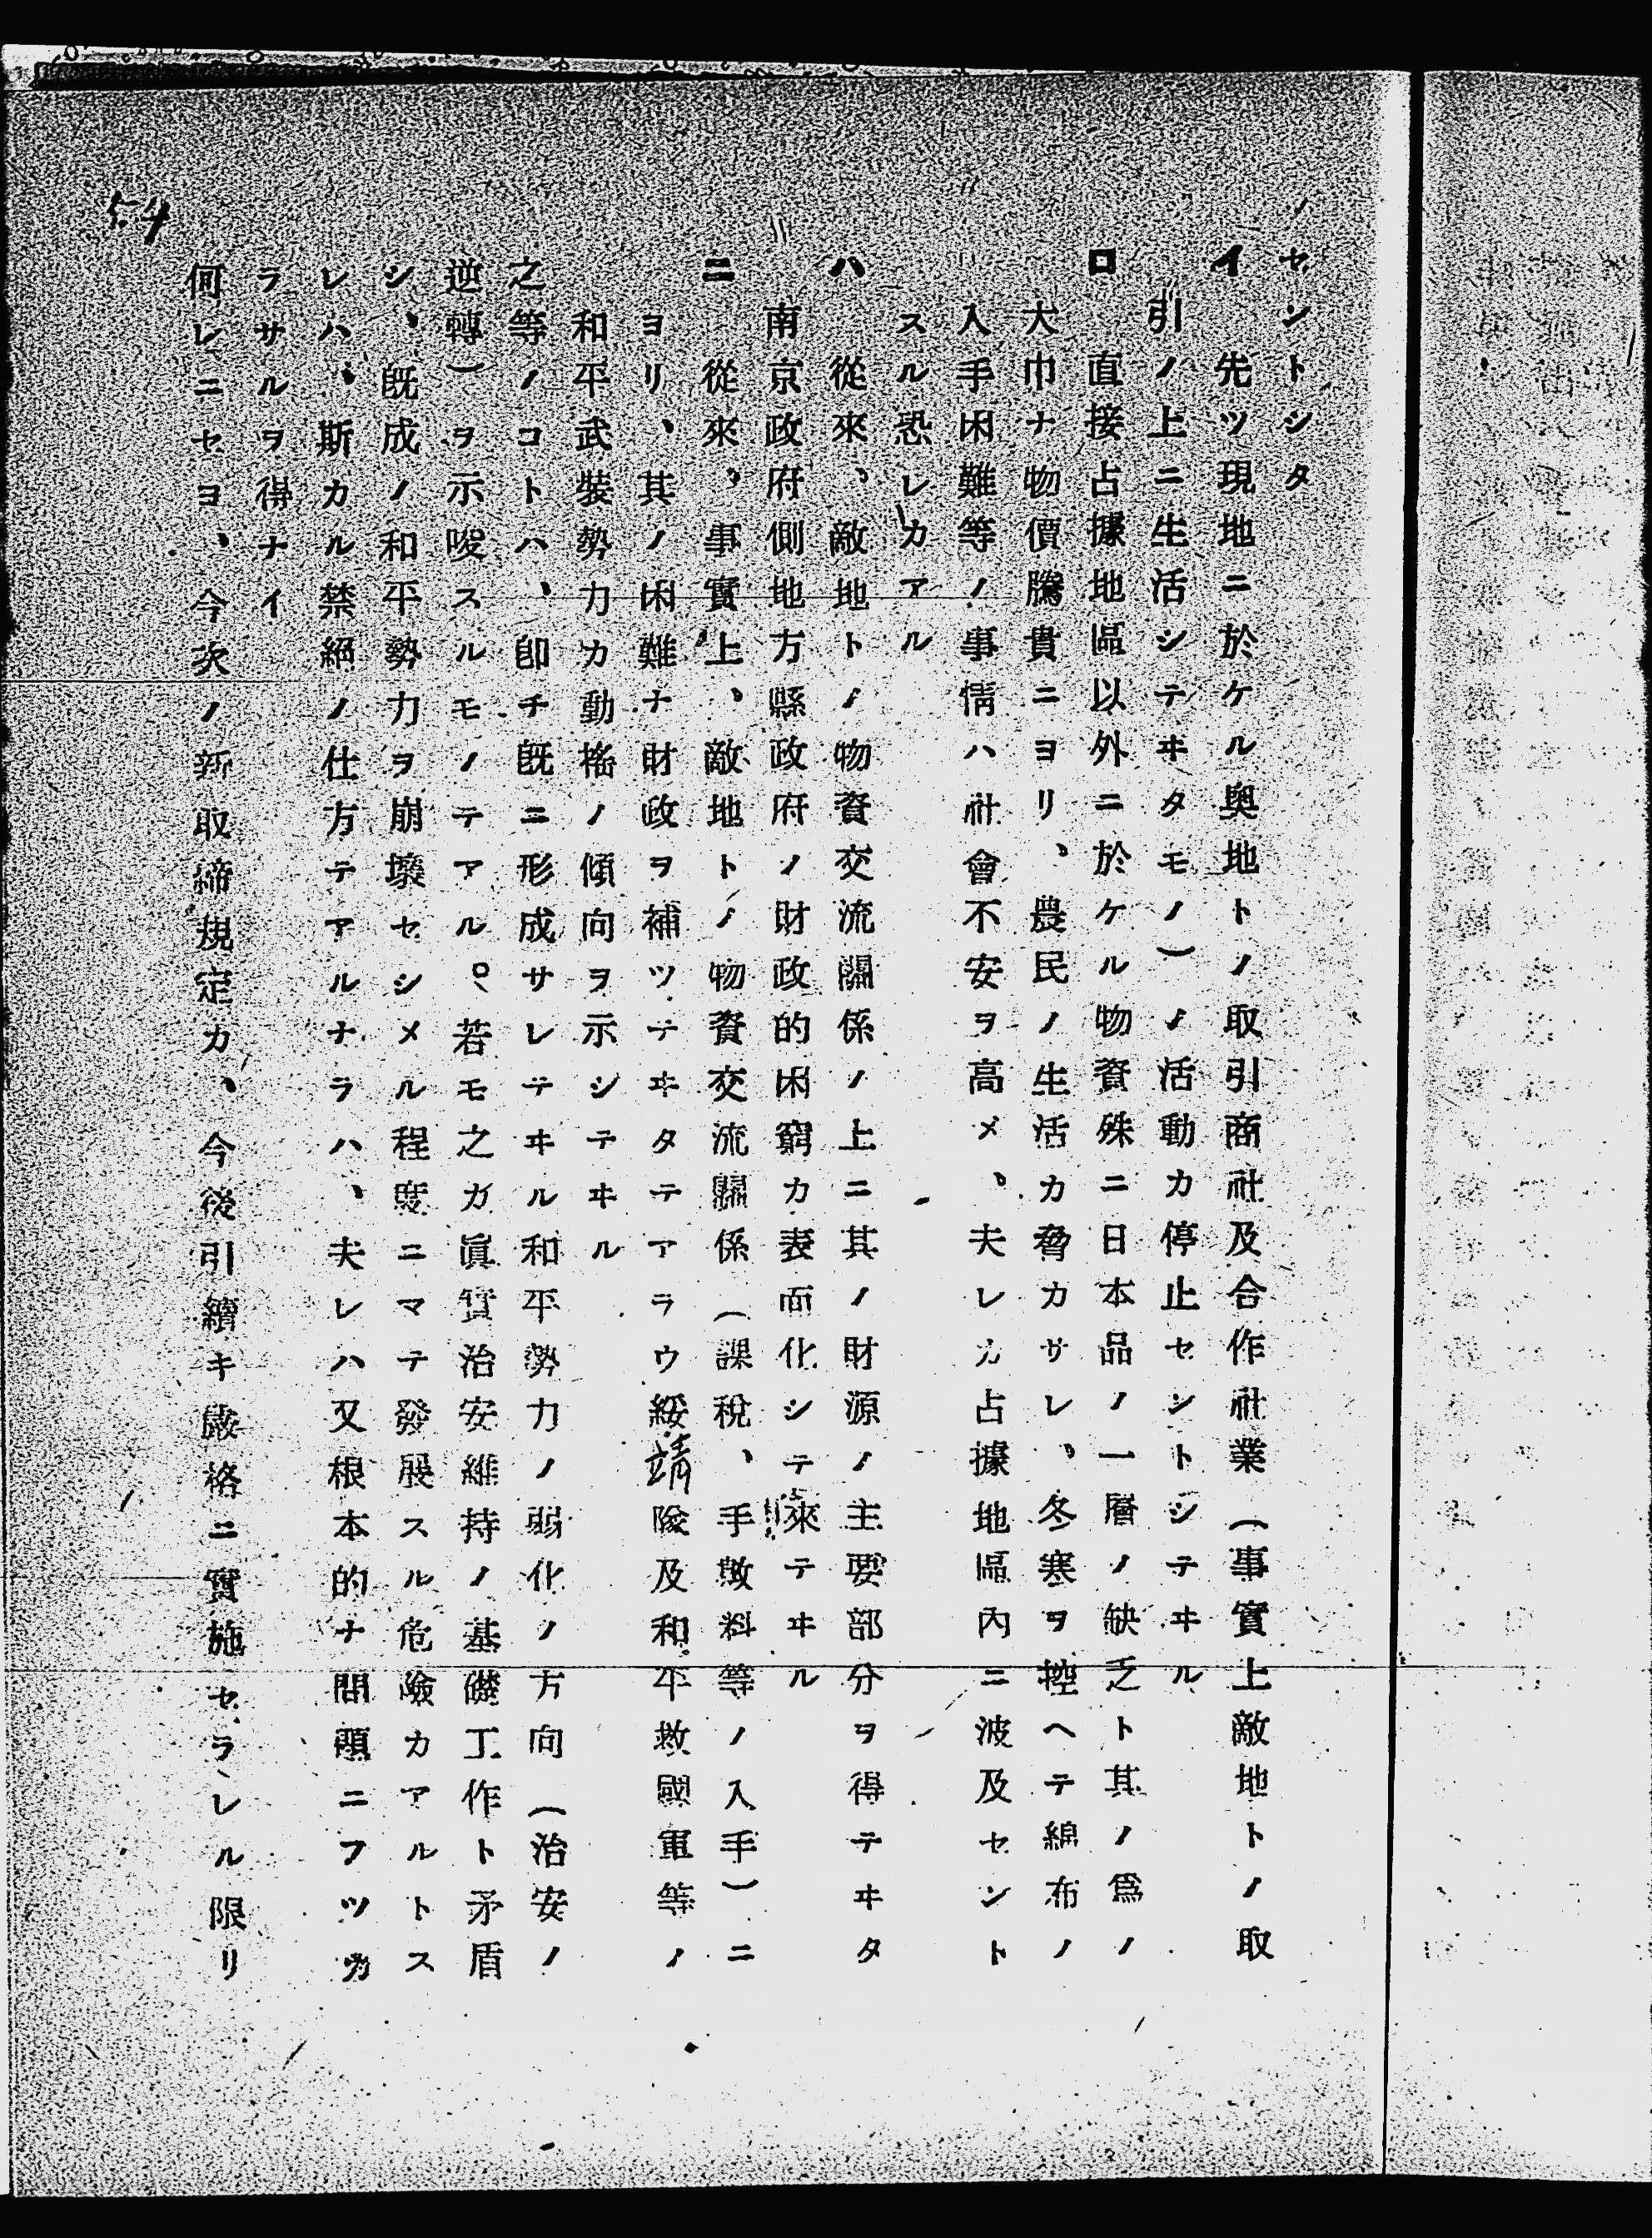 セントシタ
イ　先ツ現地ニ於ケル奧地トノ取引商社及合作社業（事實上敵地トノ取
引ノ上ニ生活シテヰタモノ）ノ活動カ停止セシトシテヰル
ロ　直接占據地區以外ニ於ケル物資殊ニ日本品ノ一層ノ缺乏ト其ノ爲ノ
大巾ナ物價騰貴ニヨリ、農民ノ生活カ脅カサレ、冬寒ヲ控ヘテ綿布ノ
入手困難等ノ事情ハ社會不安ヲ高メ、夫レカ占據地區內ニ波及セント
スル恐レカアル
ハ　從來、敵地トノ物資交流關係ノ上ニ其ノ財源ノ主要部分ヲ得テヰタ
南京政府側地方縣政府ノ財政的困窮カ表面化シテ來テヰル
ニ　從來、事實上、敵地トノ物資交流關係（課稅、手數料等ノ入手）ニ
ヨリ、其ノ困難ナ財政ヲ補ツテヰタテアラウ綏靖隊及和平救國軍等ノ
和平武裝勢力カ動搖ノ傾向ヲ示シテヰル
之等ノコトハ、卽チ既ニ形成サレテヰル和平勢力ノ弱化ノ方向（治安ノ
逆轉）ヲ示唆スルモノテアル。若モ之カ眞實治安維持ノ基礎工作ト矛盾
シ、既成ノ和平勢力ヲ崩壞セシメル程度ニマテ發展スル危險カアルトス
レハ、斯カル禁絕ノ仕方テアルナラハ、夫レハ又根本的ナ問題ニフツカ
ラサルヲ得ナイ
何レニセヨ、今次ノ新取締規定カ、今後引續キ嚴格ニ實施セラレル限リ
54